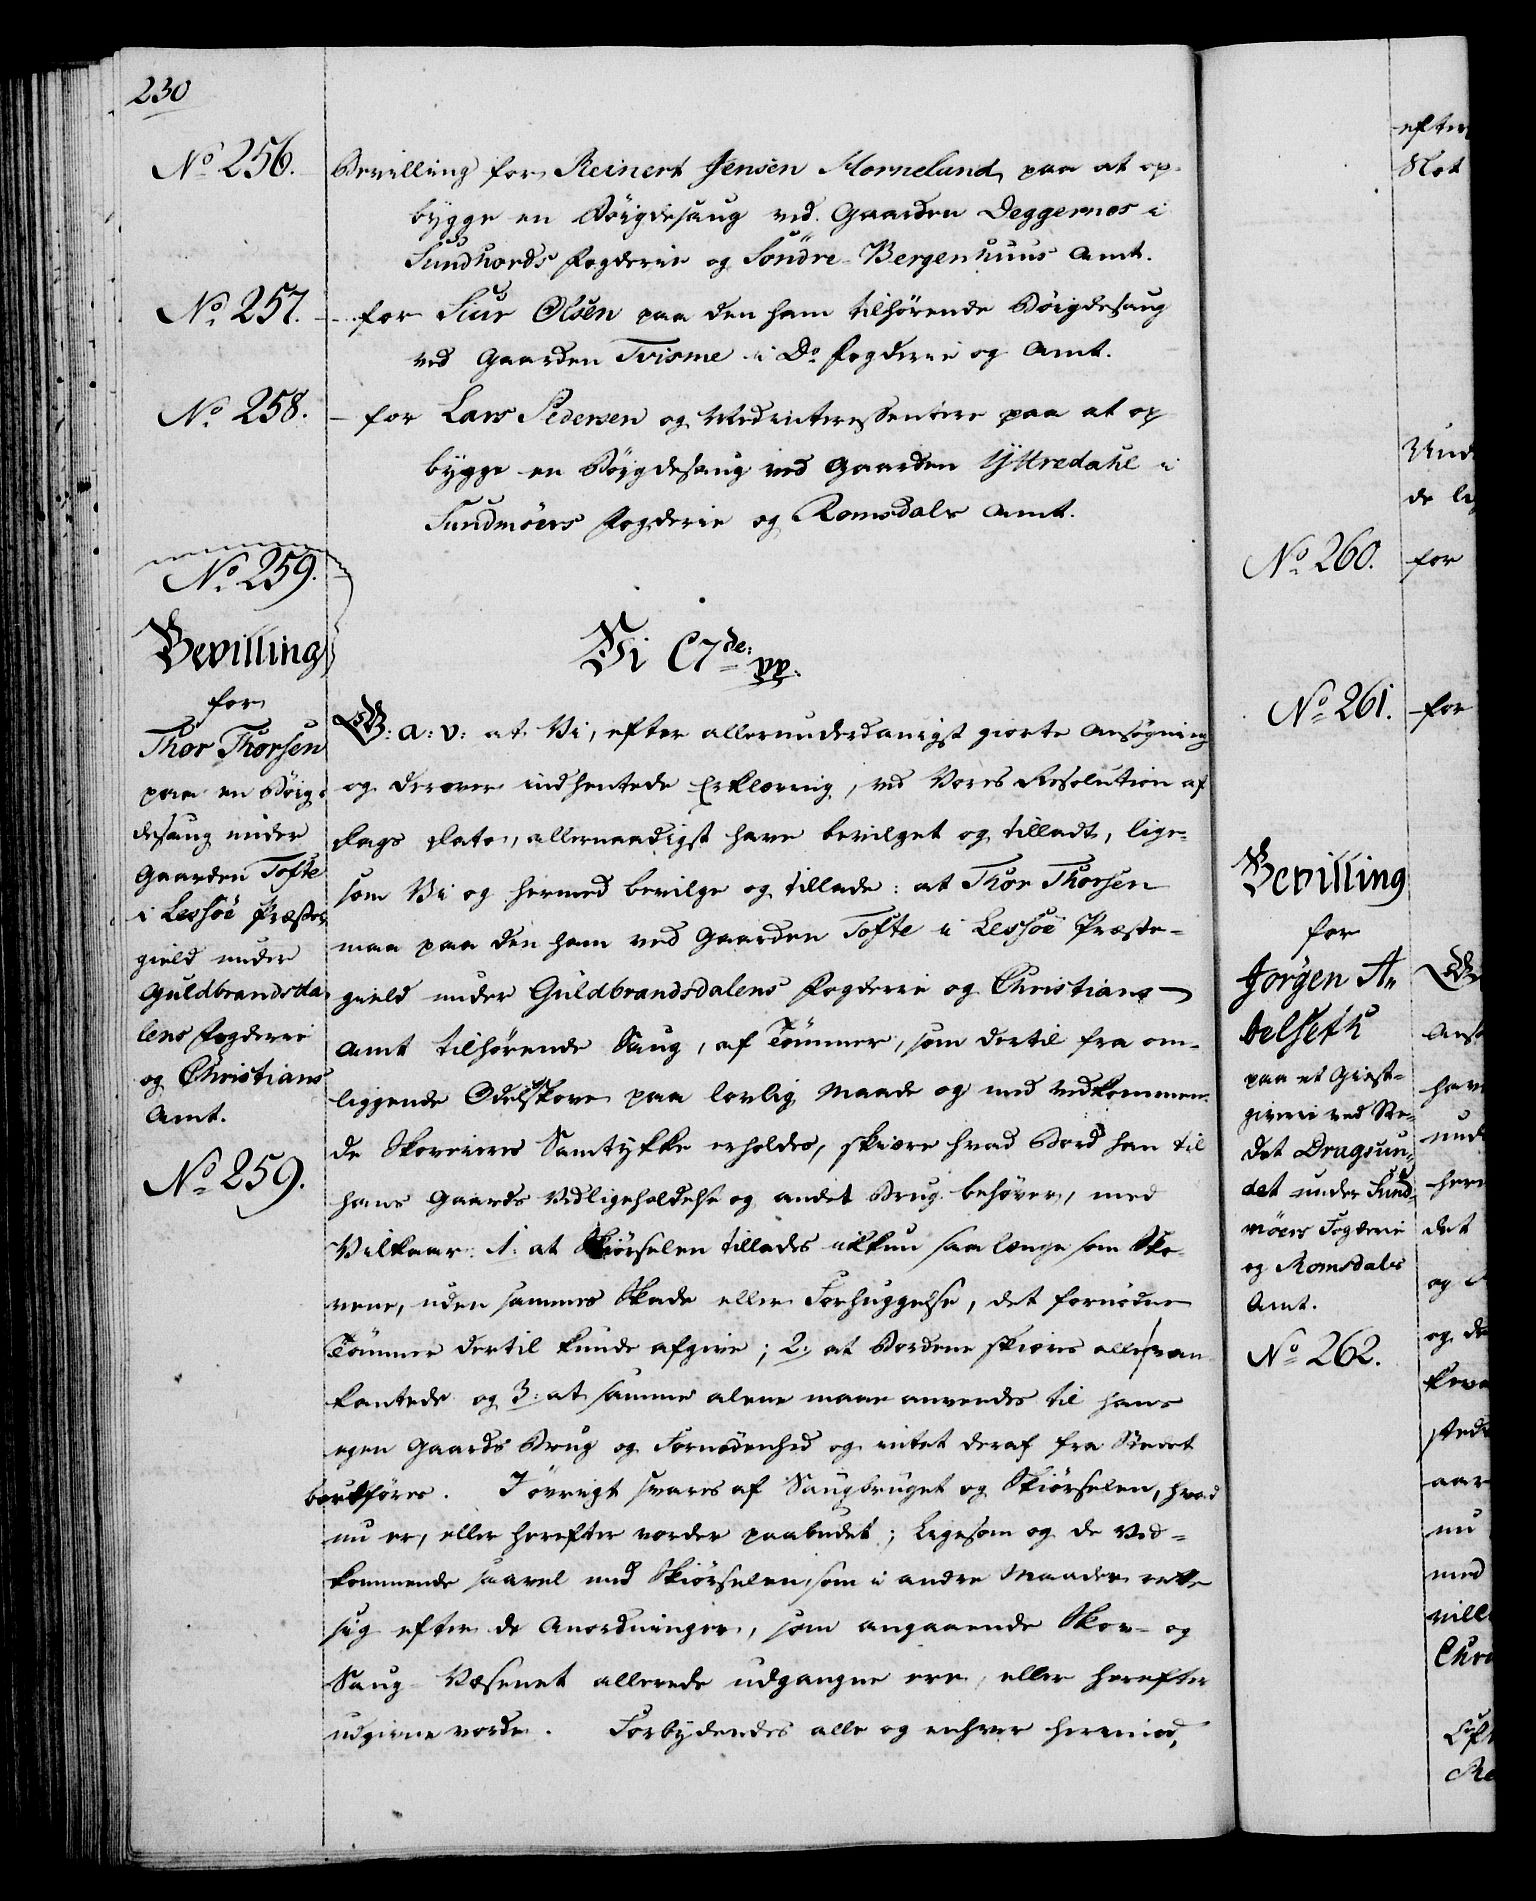 230
No 256.
Bevilling for Reinert Jensen Horneland, paa at op-
bygge en Böigdesaug ved Gaarden Deggernes i
Sundhords Fogderie og Söndre-Bergenhuus Amt.
No 257.
- for Siur Olsen paa den ham tilhörende Böigdesaug
ved Gaarden Tvisme i Do Fogderie og Amt.
No 258.
- for Lars Pedersen og Medinteressentere paa at op
bygge en Böigdesaug ved Gaarden Yttredahl i
Sundmöers Fogderie og Romsdals Amt.
No 259.
Bevilling
for
Thor Thorsen
paa en Böig-
desaug under
Gaarden Tofte
i Lessöe Præste-
gield under
Guldbrandsda-
lens Fogderie
og Christians
Amt.
No 259.
Vi C7de: pp.
G: a: v: at Vi, efter allerunderdanigst giorte Ansögning
og derover indhentede Erklæring, ved Vores Resolution af
Dags Dato, allernaadigst have bevilget og tilladt, lige-
som Vi og hermed bevilge og tillade: at Thor Thorsen
maa paa den ham ved Gaarden Tofte i Lessöe Præste-
gield under Guldbrandsdalens Fogderie og Christians
Amt tilhörende Saug, af Tömmer, som dertil fra om-
liggende Odelskove paa lovlig Maade og med Vedkommen-
de Skoveieres Samtykke erholdes, skiære hvad Bord han til
hans Gaards Vedligeholdelse og andet Brug behöver, med
Vilkaar: 1: at Skiörselen tillades ikkun saa længe som Sko-
vene, uden sammes Skade eller Forhuggelse, det fornödne
Tömmer dertil kunde afgive; 2: at Bordene skiæres alle van-
kantede og 3: at samme alene maae anvendes til hans
egen Gaards Brug og Fornödenhed og intet deraf fra Stedet
bortföres. I övrigt svares af Saugbruget og Skiörselen, hvad
nu er, eller herefter vorder paabudet; Ligesom og de Ved-
kommende saavel med Skiörselen, som i andre Maader rette
sig efter de Anordninger, som angaaende Skov- og
Saug-Væsenet allerede udgangne ere, eller herefter
udgivne vorde. Forbydendes alle og enhver herimod,
efter
Not
Und
No 260.
for
No 261.
for
Bevilling
for
Jörgen A-
belseth
paa et Giæst-
giverie ved Ste-
det Dragsun-
det under Sund-
möers Fogderie
og Romsdals
Amt.
No 262.
Ans
have
det
og
og de
aar
nu
med